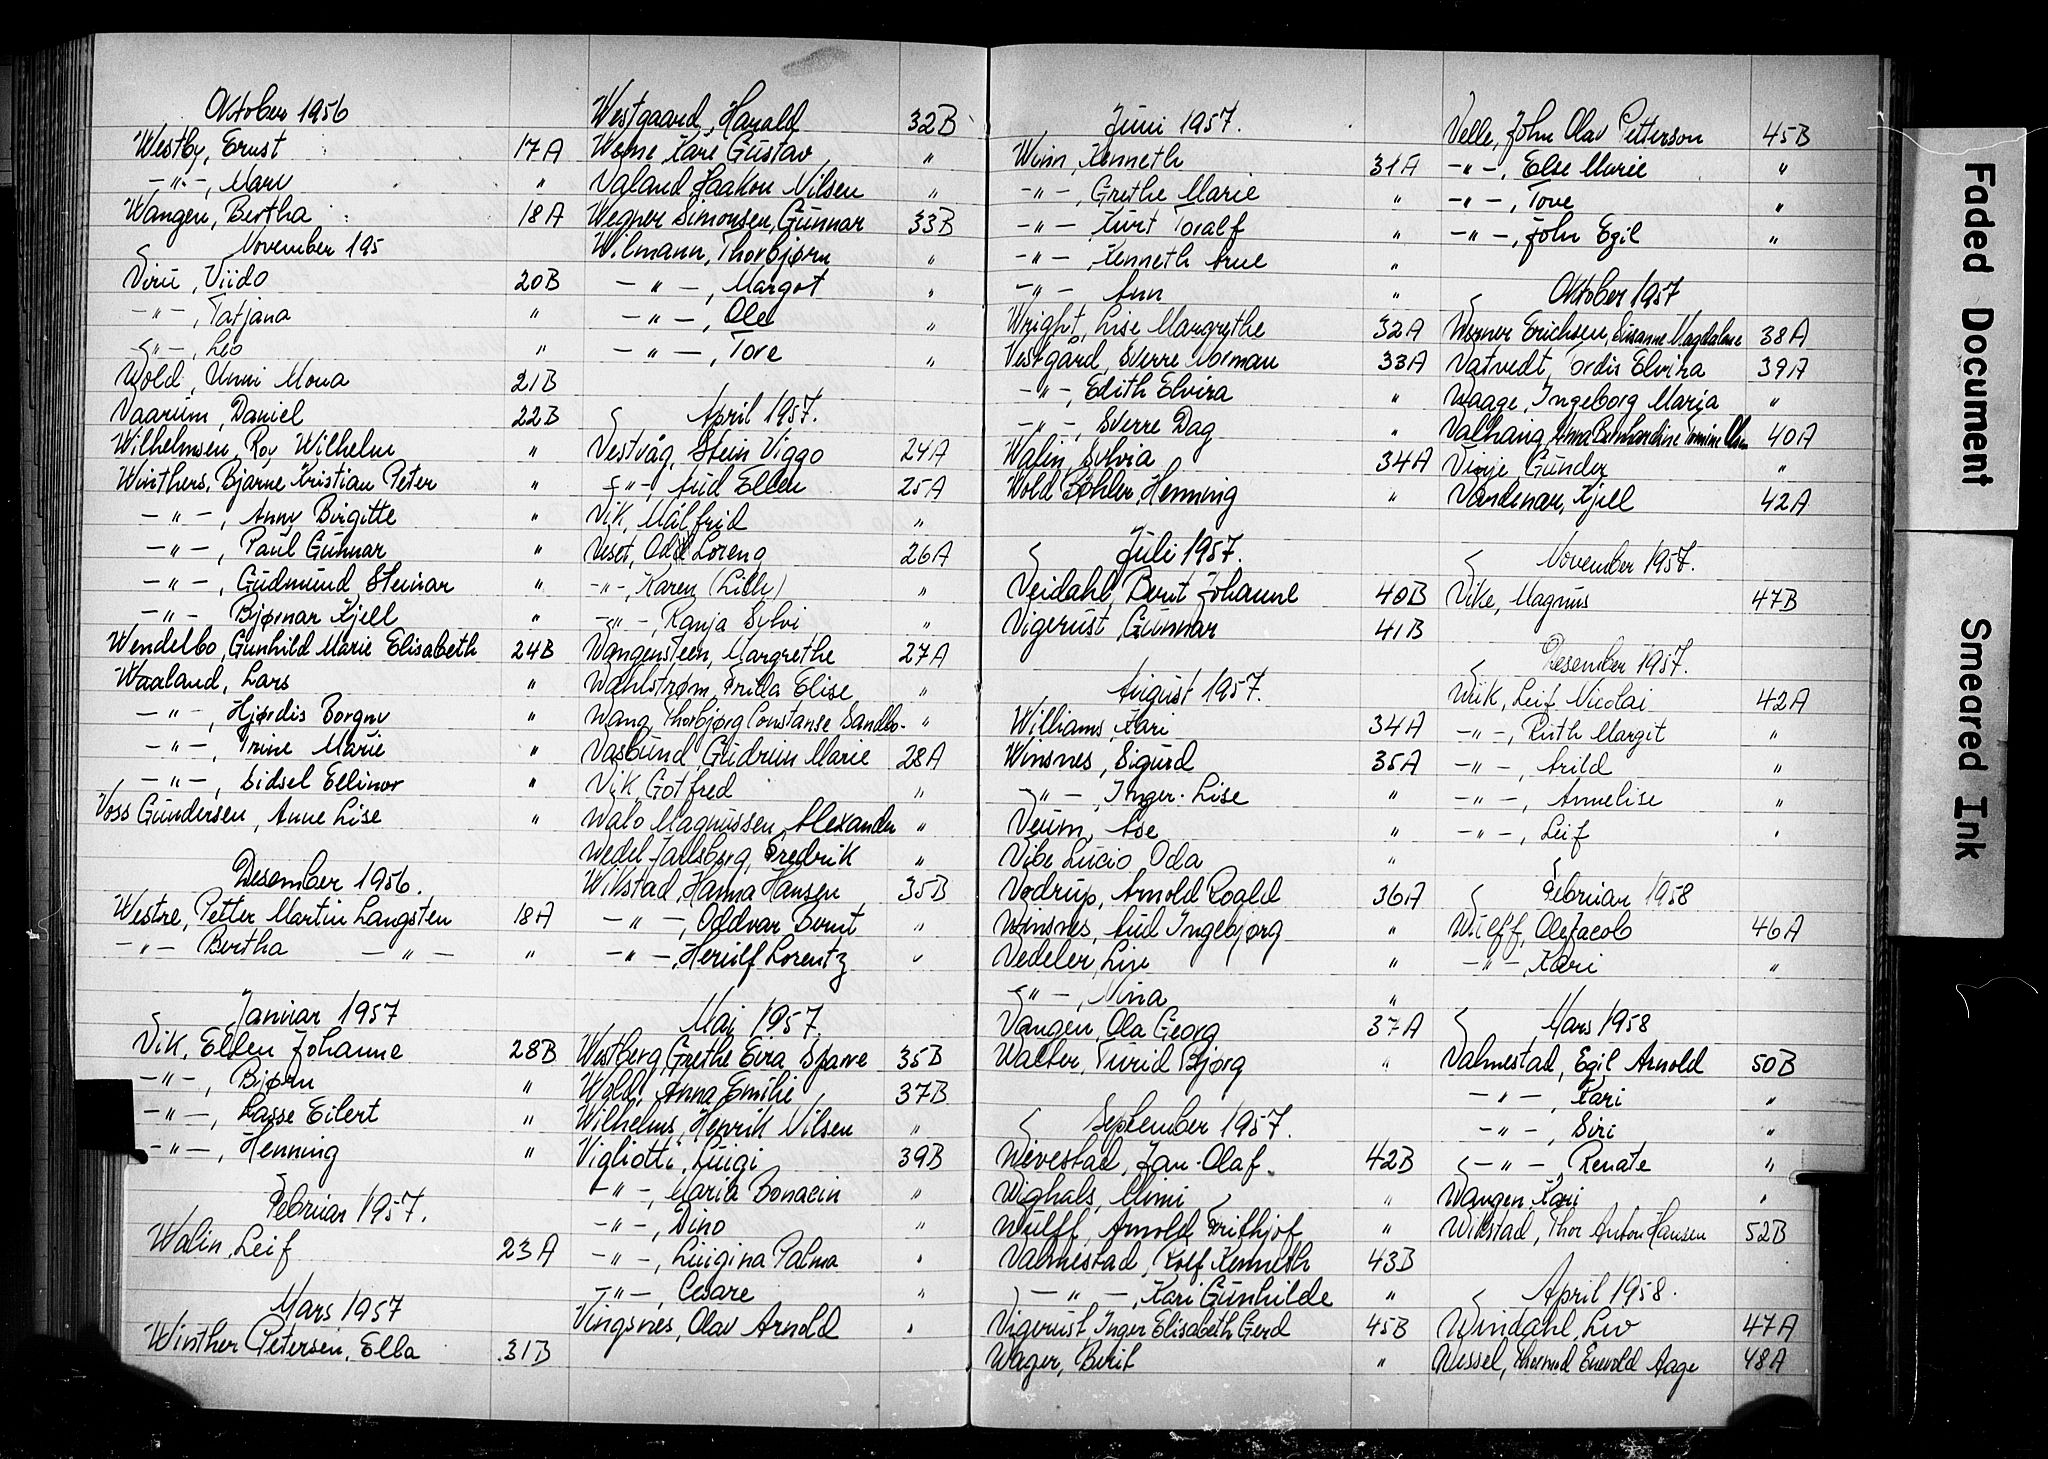 Oktober 1956
Westby, Ernst 17A
-"-, Mary "
Wangen, Bertha 18A
November 195
Viru, Viido 20B
-"-, Tatjana "
-"-, Leo "
Wold, Unni Mona 21B
Vaarum, Daniel 22B
Wilhelmsen, Roy Wilhelm "
Winthers, Bjarne Kristian Peter "
-"-, Anny Birgitte "
-"-, Paul Gunnar "
-"-, Gudmund Steinar "
-"- Bjørnar Kjell "
Wendelbo, Gunhild Marie Elisabeth 24B
Waaland, Lars "
-"-, Hjørdis Borgny "
-"-, Trine Marie "
-"-, Sidsel Ellinor "
Voss Gundersen, Anne Lise "
Desember 1956.
Westre, Petter Martin Langsten 18A
-"- Bertha -"- "
Januar 1957
Vik, Ellen Johanne 28B
-"-, Bjørn "
-"-, Lasse Eilert "
-"-, Henning "
Februar 1957.
Walin, Leif 23A
Mars 1957
Winther Petersen, Ella 31B
Westgaard, Harald 32B
Werne Kåre Gustav "
Valand Haakon Nilsen "
Wegner Simonsen, Gunnar 33B
Wilmann, Thorbjørn "
-"-, Margot "
-"-, Ole "
-"-, Tore "
April 1957.
Vestvåg, Stein Viggo 24A
-"-, Aud Ellen 25A
Vik, Målfrid "
Veset, Odd Loreng 26A
-"-, Karen (Lilly) "
-"-, Ranja Sylvi "
Wangensteen, Margrethe 27A
Wahlstrøm, Frida Elise "
Wang, Thorbjørg Constanse Sandbo- "
Vasbund, Gudrun Marie 28A
Vik, Gotfred "
Walo Magnussen, Alexander "
Wedel-Jarlsberg, Fredrik "
Wikstad, Hanna Hansen 35B
-"-, Oddvar Bernt "
-"-, Herulf Lorentz "
Mai 1957.
Westberg, Grethe Eira Sparre 35B
Wold, Anna Emilie 37B
Wilhelms, Henrik Nilsen "
Vigliotti, Luigi 39B
-"-, Maria Bonacin "
-"-, Dino "
-"-, Luigina Palma "
-"-, Cesare "
Vingsnes, Olav Arnold "
Juni 1957.
Winn, Kenneth 31A
-"-, Grethe Marie "
-"-, Kurt Toralf "
-"-, Kenneth Arne "
-"- Ann "
Wright, Lise Margrethe 32A
Vestgård, Sverre Norman 33A
-"-, Edith Elvira "
-"-, Sverre Dag "
Walin, Sylvia 34A
Wold Bøhler, Henning "
Juli 1957.
Veidahl, Berit Johanne 40B
Vigerust, Gunnar 41B
August 1957.
Williams, Kari 34A
Winsnes, Sigurd 35A
-"-, Inger-Lise "
Veum, Åse "
Vibe Lucio, Oda "
Vodrup, Arnold Roald 36A
Winsnes, Aud Ingebjørg "
Vedeler, Liv "
-"-, Nina "
Vangen, Ola Georg 37A
Walter, Turid Bjørg "
September 1957.
Wivestad, Jan-Olaf. 42B
Wighals, Mimi "
Wulff, Arnold Frithjof "
Valmestad, Rolf Kenneth 43B
-"-, Kari Gunhilde "
Vigerust, Inger Elisabeth Gerd 45B
Wager, Berit "
Velle, John Olav Petterson 45B
-"-, Else Marie "
-"-, Tove "
-"-, John Egil "
Oktober 1957
Werner Erichsen, Susanne Magdalene 38A
Vatvedt, Tordis Elvira 39A
Waage, Ingeborg Marja "
Valhaug, Anna Bernhardine Tomine Olsen 40A
Vinje Gunder "
Vandenar, Kjell 42A
November 1957.
Vike, Magnus 47B
Desember 1957.
Wiik, Leif Nicolai 42A
-"-, Ruth Margit "
-"-, Arild "
-"-, Annelise "
-"-, Leif "
Februar 1958
Wulff, Ole Jacob 46A
-"-, Kari "
Mars 1958
Valmestad, Egil Arnold 50B
-"-, Kari "
-"-, Siri "
-"-, Renate "
Wangen Kari "
Wikstad, Thor Anton Hansen 52B
April 1958.
Windahl, Liv 47A
Wessel, Thormod Enevold Aage 48A
Faded Document
Smeared Ink